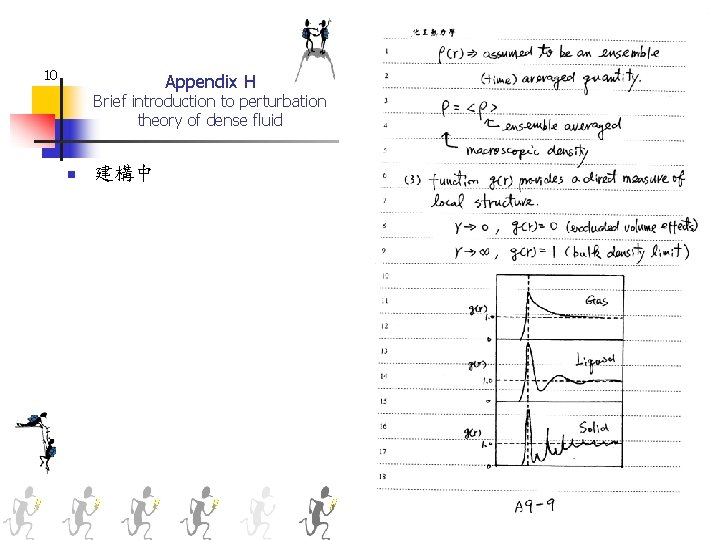 10
Appendix H
Brief introduction to perturbation
theory of dense fluid
建構中
化工熱力學
1 ρ(r) ⇒ assumed to be an ensemble
2 (time) averaged quantity.
3 ρ = <ρ>
4 ensemble averaged
5 macroscopic density
6 (3) function g(r) provides a direct measure of
7 local structure.
8 r→0, g(r)=0 (excluded volume effects)
9 r→∞, g(r)=1 (bulk density limit)
10
11 g(r) 1.0 Gas
12 0
13 g(r) Liquid
14 1.0
15 0
16 g(r) Solid
17 1.0
0
18
A9-9